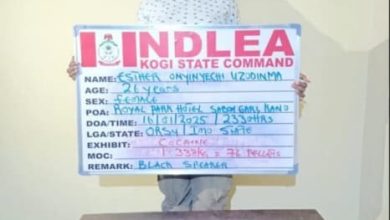 NDLEA
KOGI STATE COMMAND
NAME: ESTHER ONYINYECHI UZODINMA
AGE: 26 years
SEX: female
POA: ROYAL PARK HOTEL SABON GARI KANO
DOA/TIME: 16/01/2025 / 2330HRS
LGA/STATE: ORSU / IMO STATE
EXHIBIT: COCAINE
MOC: 1.337kg = 76 PELLETS
REMARK: BLACK SPEAKER